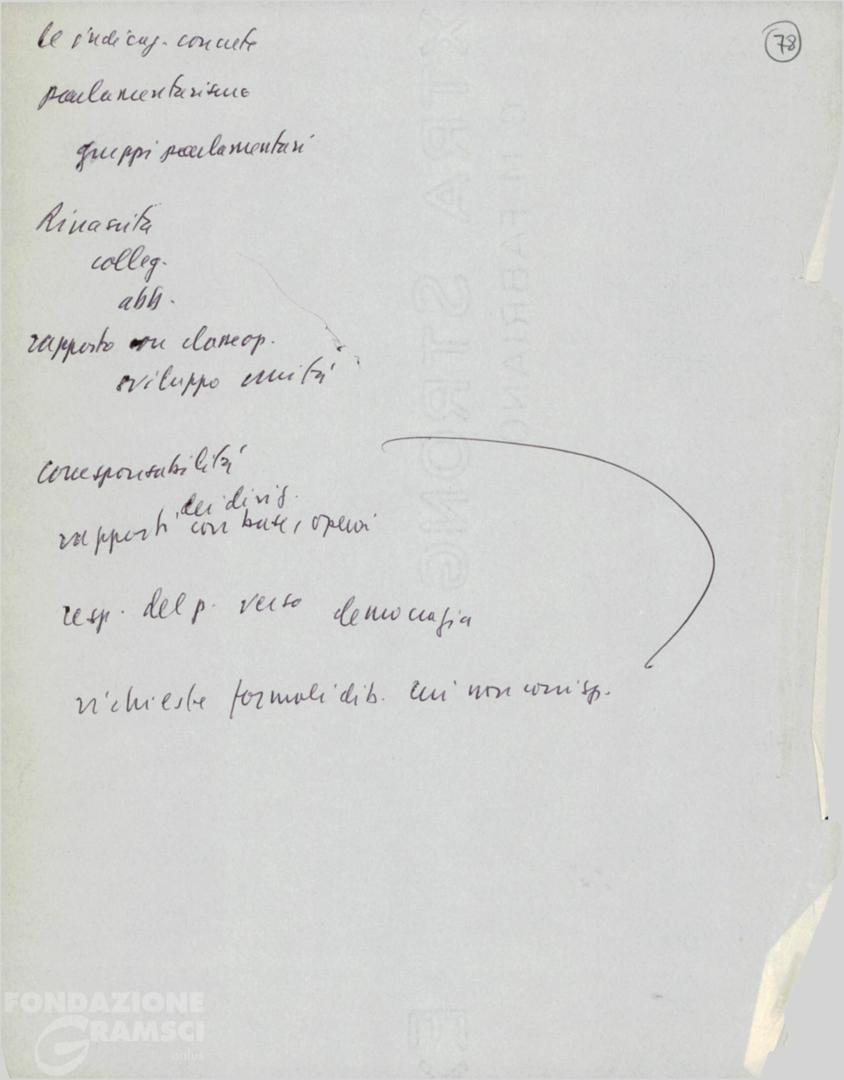 78
le indicaz. concrete
parlamentarismo
gruppi parlamentari
Rinascita
colleg.
abb.
rapporto con classe op.
sviluppo unità
corresponsabilità
dei dirig.
rapporti con base, operai
resp. del p. verso democrazia
richieste formali dib. cui non corrisp.
EXTRA STRONG
FABRIANO
FONDAZIONE
GRAMSCI
onlus